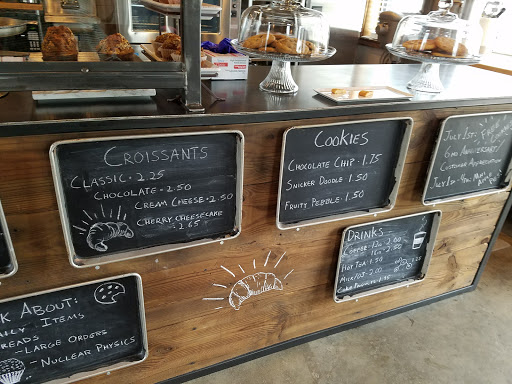 Croissants
Classic - 2.25
Chocolate - 2.50
Cream Cheese - 2.50
Cherry Cheesecake
2.65
Cookies
Chocolate Chip - 1.75
Snicker Doodle 1.50
Fruity Pebble - 1.50
July 1st
6mo Anniversary
Customer Appreciation
July 1st
Drinks
Coffee - 12oz 2.00
Hot Tea - 1.50
Milk/OJ - 2.00
k About:
ily Items
reads
- Large Orders
- Nuclear Physics